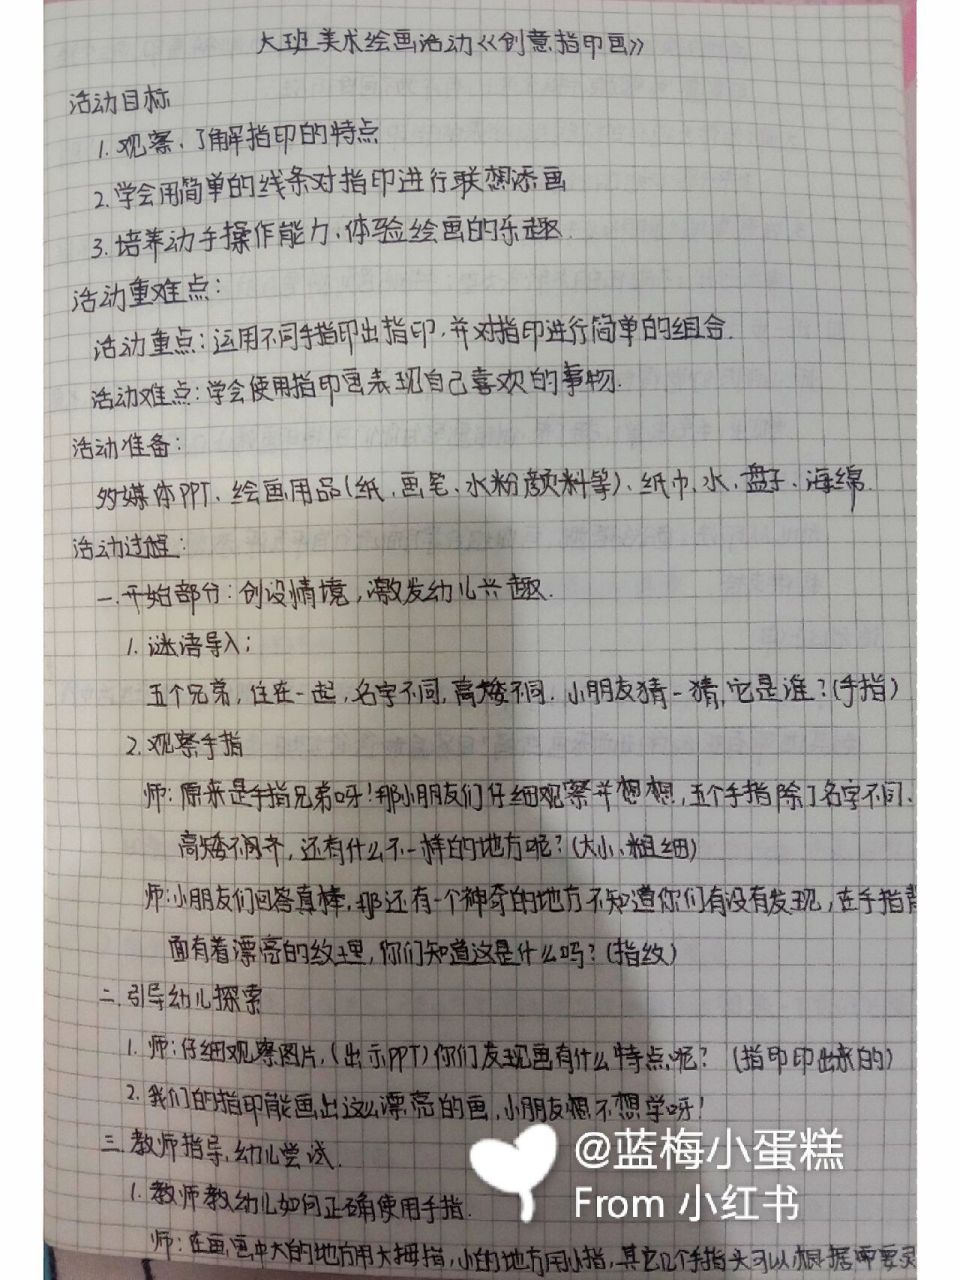 大班美术绘画活动《创意指印画》
活动目标
1.观察、了解指印的特点
2.学会用简单的线条对指印进行联想添画
3.培养动手操作能力,体验绘画的乐趣.
活动重难点:
活动重点:运用不同手指印出指印,并对指印进行简单的组合.
活动难点:学会使用指印画表现自己喜欢的事物.
活动准备:
多媒体PPT、绘画用品(纸、画笔、水粉颜料等)、纸巾、水、盘子、海绵.
活动过程:
一.开始部分:创设情境,激发幼儿兴趣.
1.谜语导入:
五个兄弟,住在一起,名字不同,高矮不同.小朋友猜一猜,它是谁?(手指)
2.观察手指
师:原来是手指兄弟呀!那小朋友们仔细观察并想想,五个手指除了名字不同、
高矮不同齐,还有什么不一样的地方呢?(大小、粗细)
师:小朋友们回答真棒,那还有一个神奇的地方不知道你们有没有发现,在手指背
面有着漂亮的纹理,你们知道这是什么吗?(指纹)
二.引导幼儿探索
1.师:仔细观察图片,(出示PPT)你们发现画有什么特点呢?(指印印出来的)
2.我们的指印能画出这么漂亮的画,小朋友想不想学呀!
三.教师指导,幼儿尝试.
1.教师教幼儿如何正确使用手指.
师:在画画中大的地方用大拇指,小的地方用小指,其它几个手指头可以根据需要灵
@蓝梅小蛋糕
From 小红书